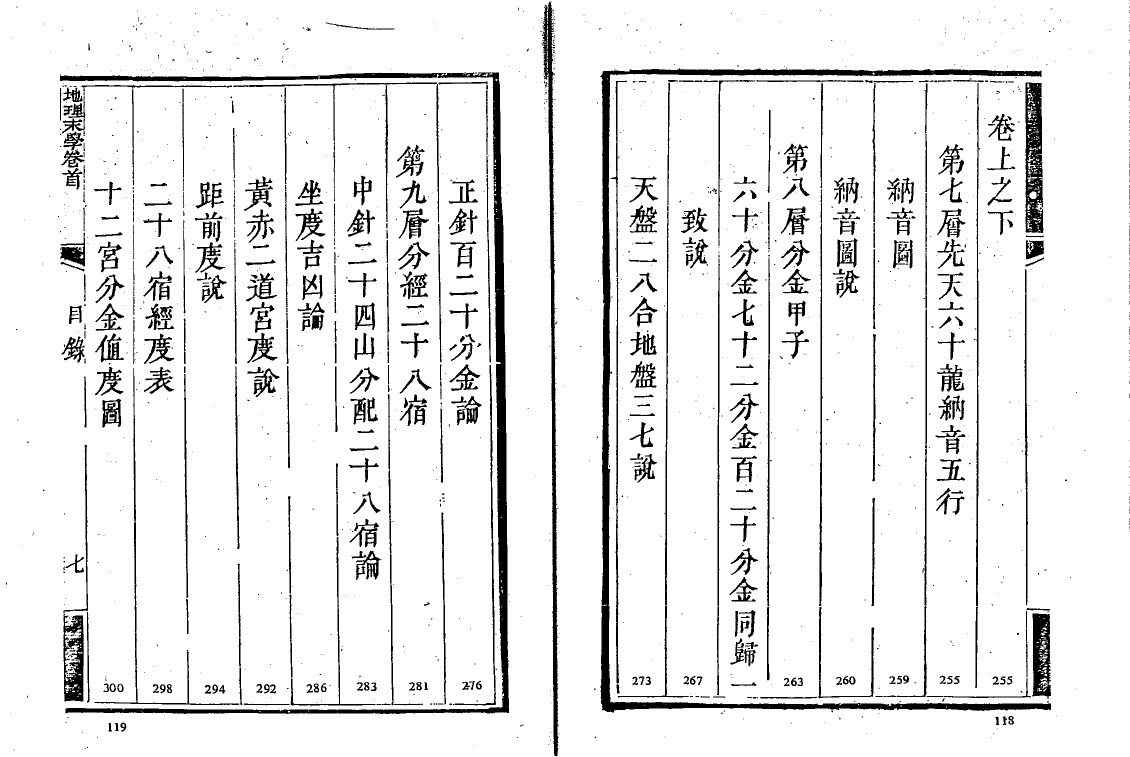 卷上之下 255
第七層先天六十龍納音五行 255
納音圖 259
納音圖說 260
第八層分金甲子 263
六十分金七十二分金百二十分金同歸一
致說 267
天盤二八合地盤三七說 273
118
正針百二十分金論 276
第九層分經二十八宿 281
中針二十四山分配二十八宿論 283
坐度吉凶論 286
黃赤二道宮度說 292
距前度說 294
二十八宿經度表 298
十二宮分金値度圖 300
地理末學卷首 目錄 七
119